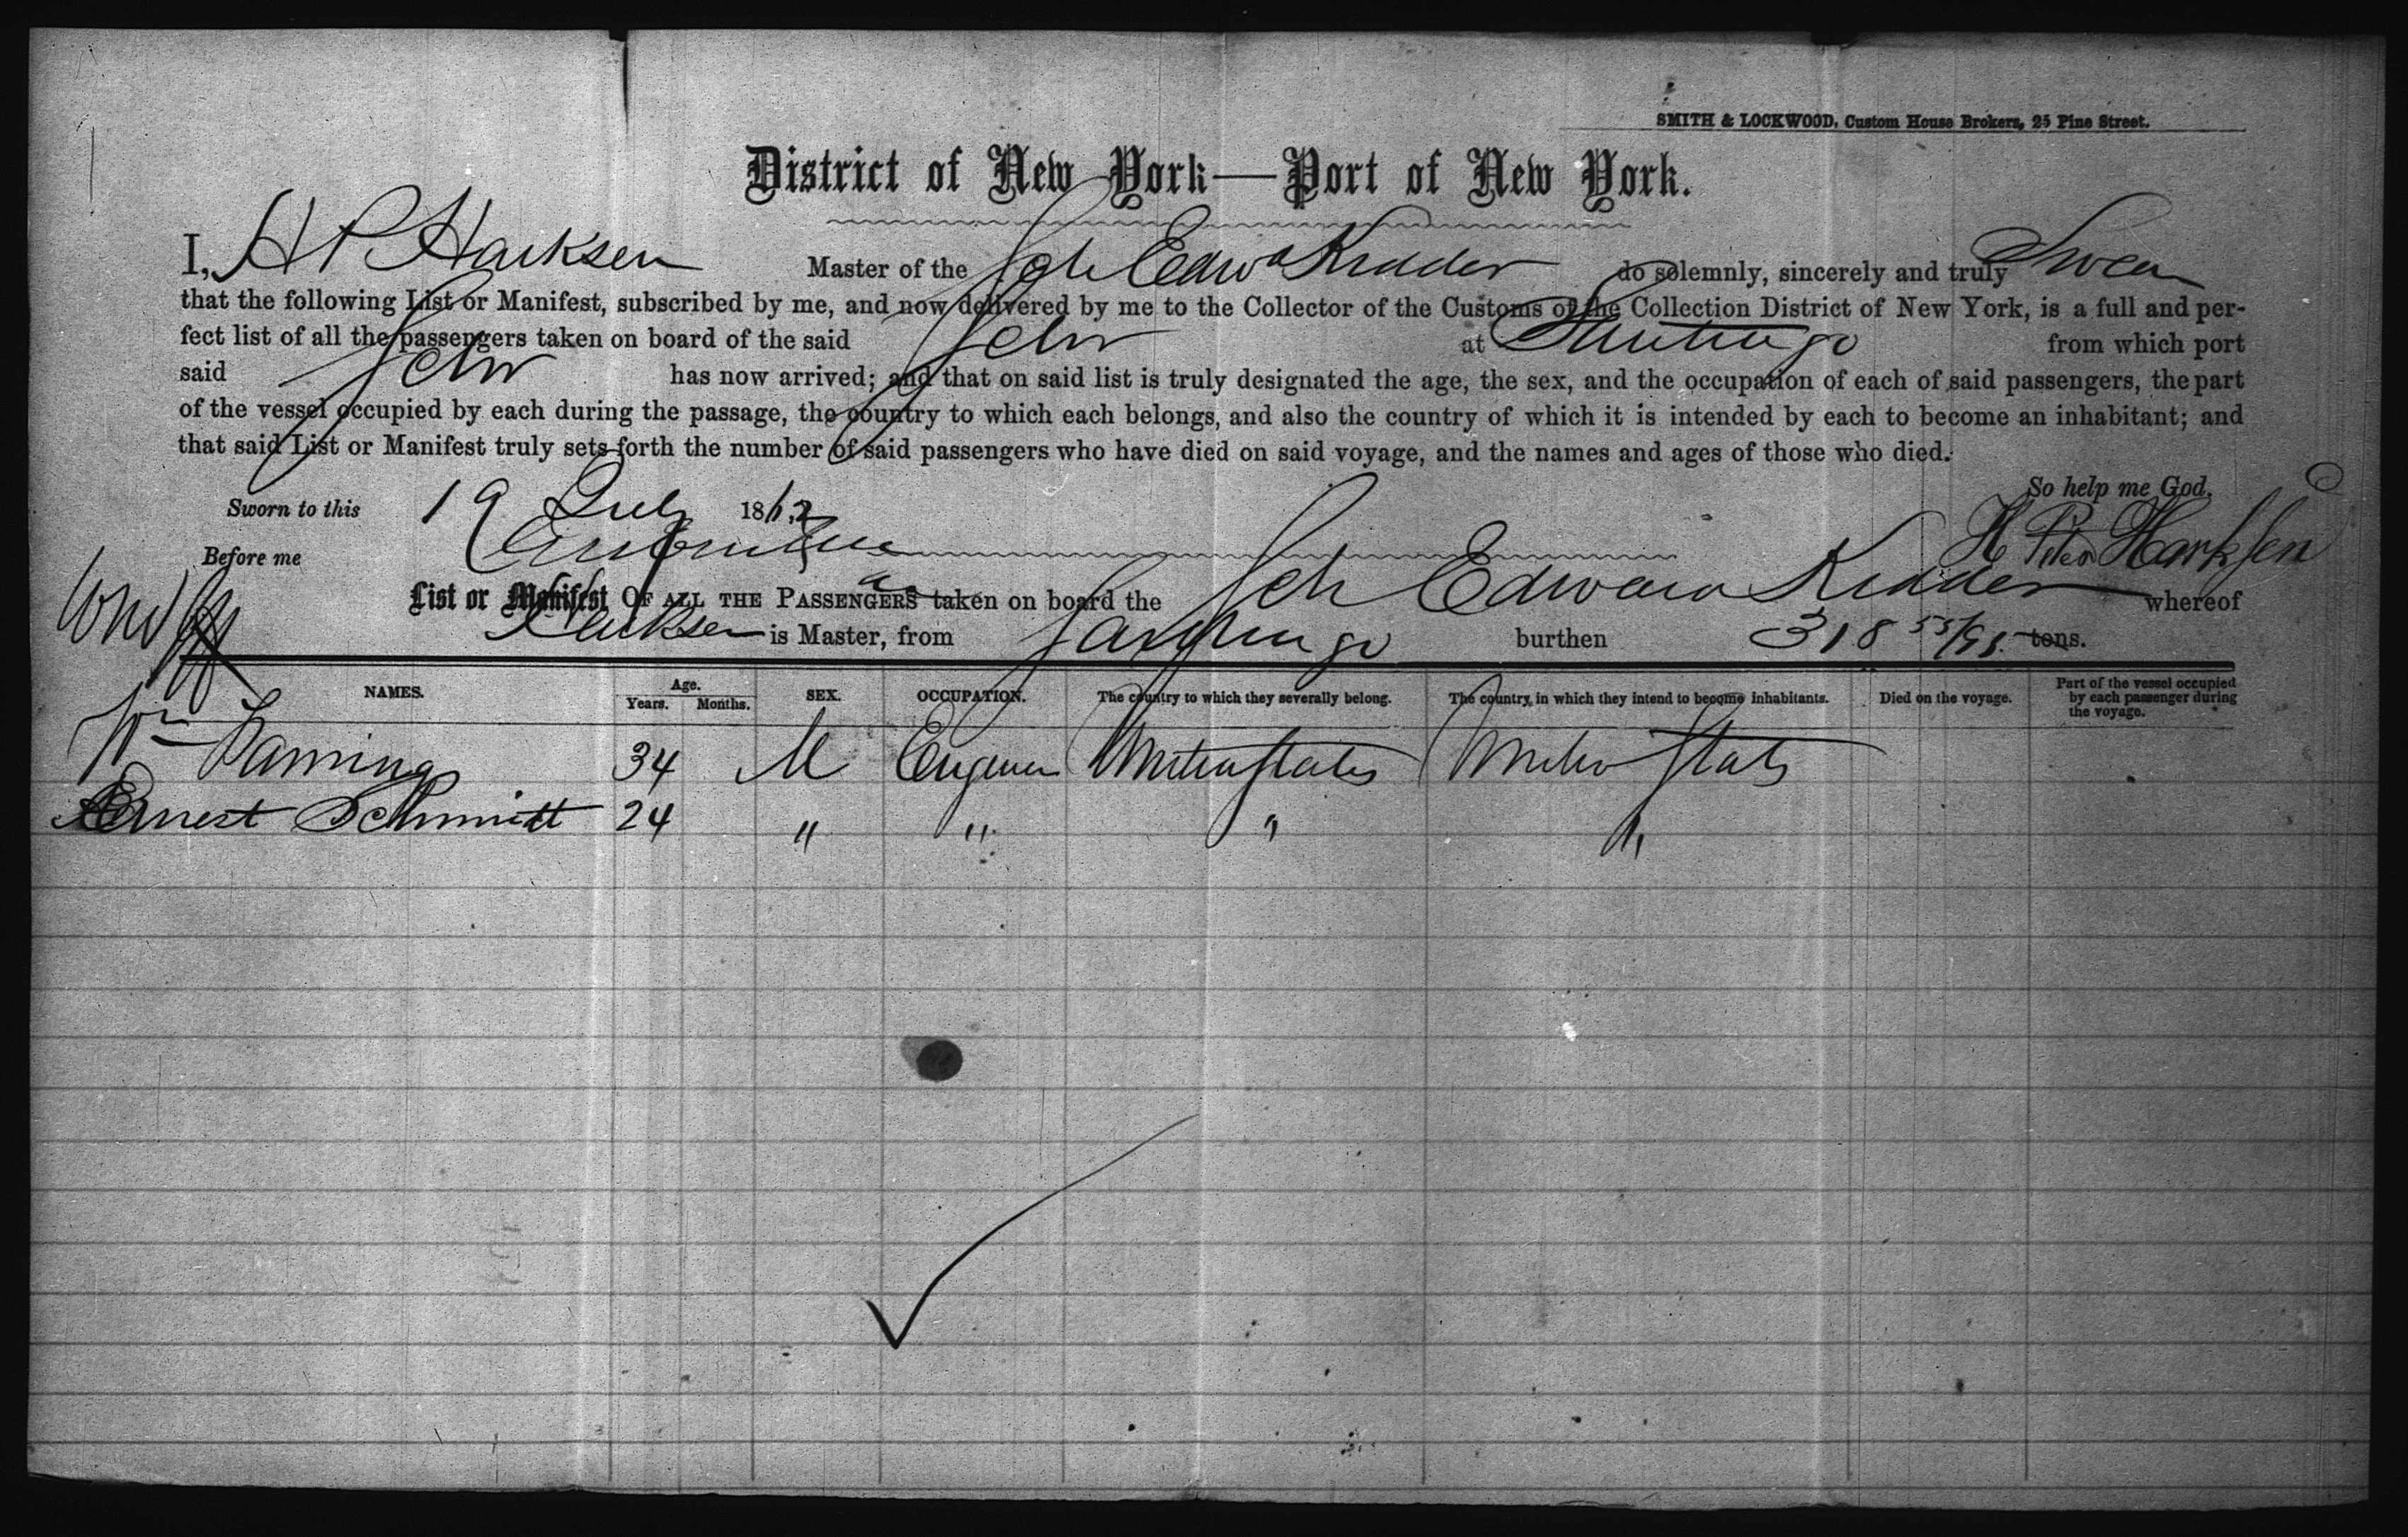 SMITH & LOCKWOOD, Custom House Brokers, 25 Pine Street.
District of New York—Port of New York.
I, H P Harksen Master of the Sch Edwd Kidder do solemnly, sincerely and truly Swear
that the following List or Manifest, subscribed by me, and now delivered by me to the Collector of the Customs of the Collection District of New York, is a full and per-
fect list of all the passengers taken on board of the said Schr at from which port
said Schr has now arrived; and that on said list is truly designated the age, the sex, and the occupation of each of said passengers, the part
of the vessel occupied by each during the passage, the country to which each belongs, and also the country of which it is intended by each to become an inhabitant; and
that said List or Manifest truly sets forth the number of said passengers who have died on said voyage, and the names and ages of those who died.
So help me God.
Sworn to this 19 July 1862
H Peter Harksen
Before me
List or Manifest OF ALL THE PASSENGERS taken on board the Sch Edward Kidder whereof
Harksen is Master, from burthen 318 55/95 tons.
NAMES. Age. Years. Months. SEX. OCCUPATION. The country to which they severally belong. The country in which they intend to become inhabitants. Died on the voyage. Part of the vessel occupied by each passenger during the voyage.
Wm Laming 34 M Engineer United States United States
Ernest Schmidt 24 " " " "